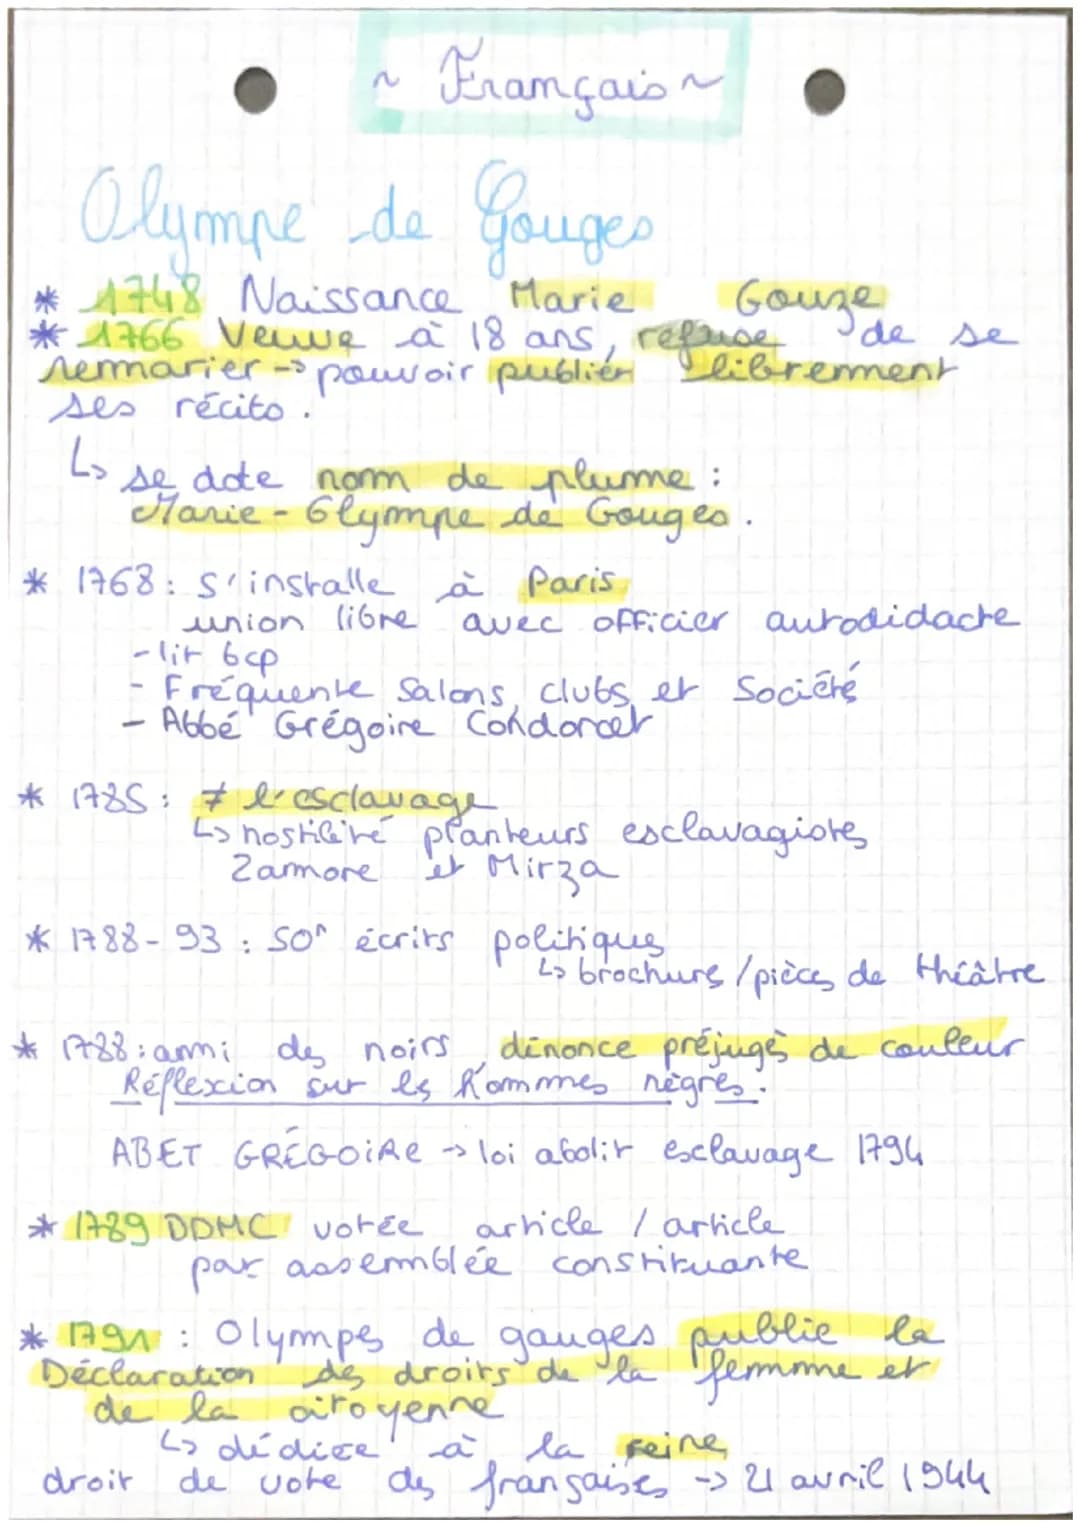 ~ Français ~
Olympe de Gouges
* 1748 Naissance Marie Gouze
* 1766 Veuve à 18 ans, refuse de se
remarier -> pouvoir publier librement
ses récits.
↳ se dote nom de plume :
Marie-Olympe de Gouges.
* 1768 : s'installe à Paris
union libre avec officier autodidacte
- lit bcp
- Fréquente Salons, clubs et Société
- Abbé Grégoire Condorcet
* 1785 : ≠ l'esclavage
↳ hostilité planteurs esclavagistes
Zamore et Mirza
* 1788-93 : 50n écrits politiques
↳ brochures / pièces de théâtre
* 1788 : ami des noirs, dénonce préjugés de couleur
Réflexion sur les hommes nègres.
ABET GRÉGOIRE -> loi abolit esclavage 1794
* 1789 DDMC votée article / article
par assemblée constituante
* 1791 : Olympes de gauges publie la
Déclaration des droits de la femme et
de la citoyenne
↳ dédice à la reine
droit de vote des françaises -> 21 avril 1944